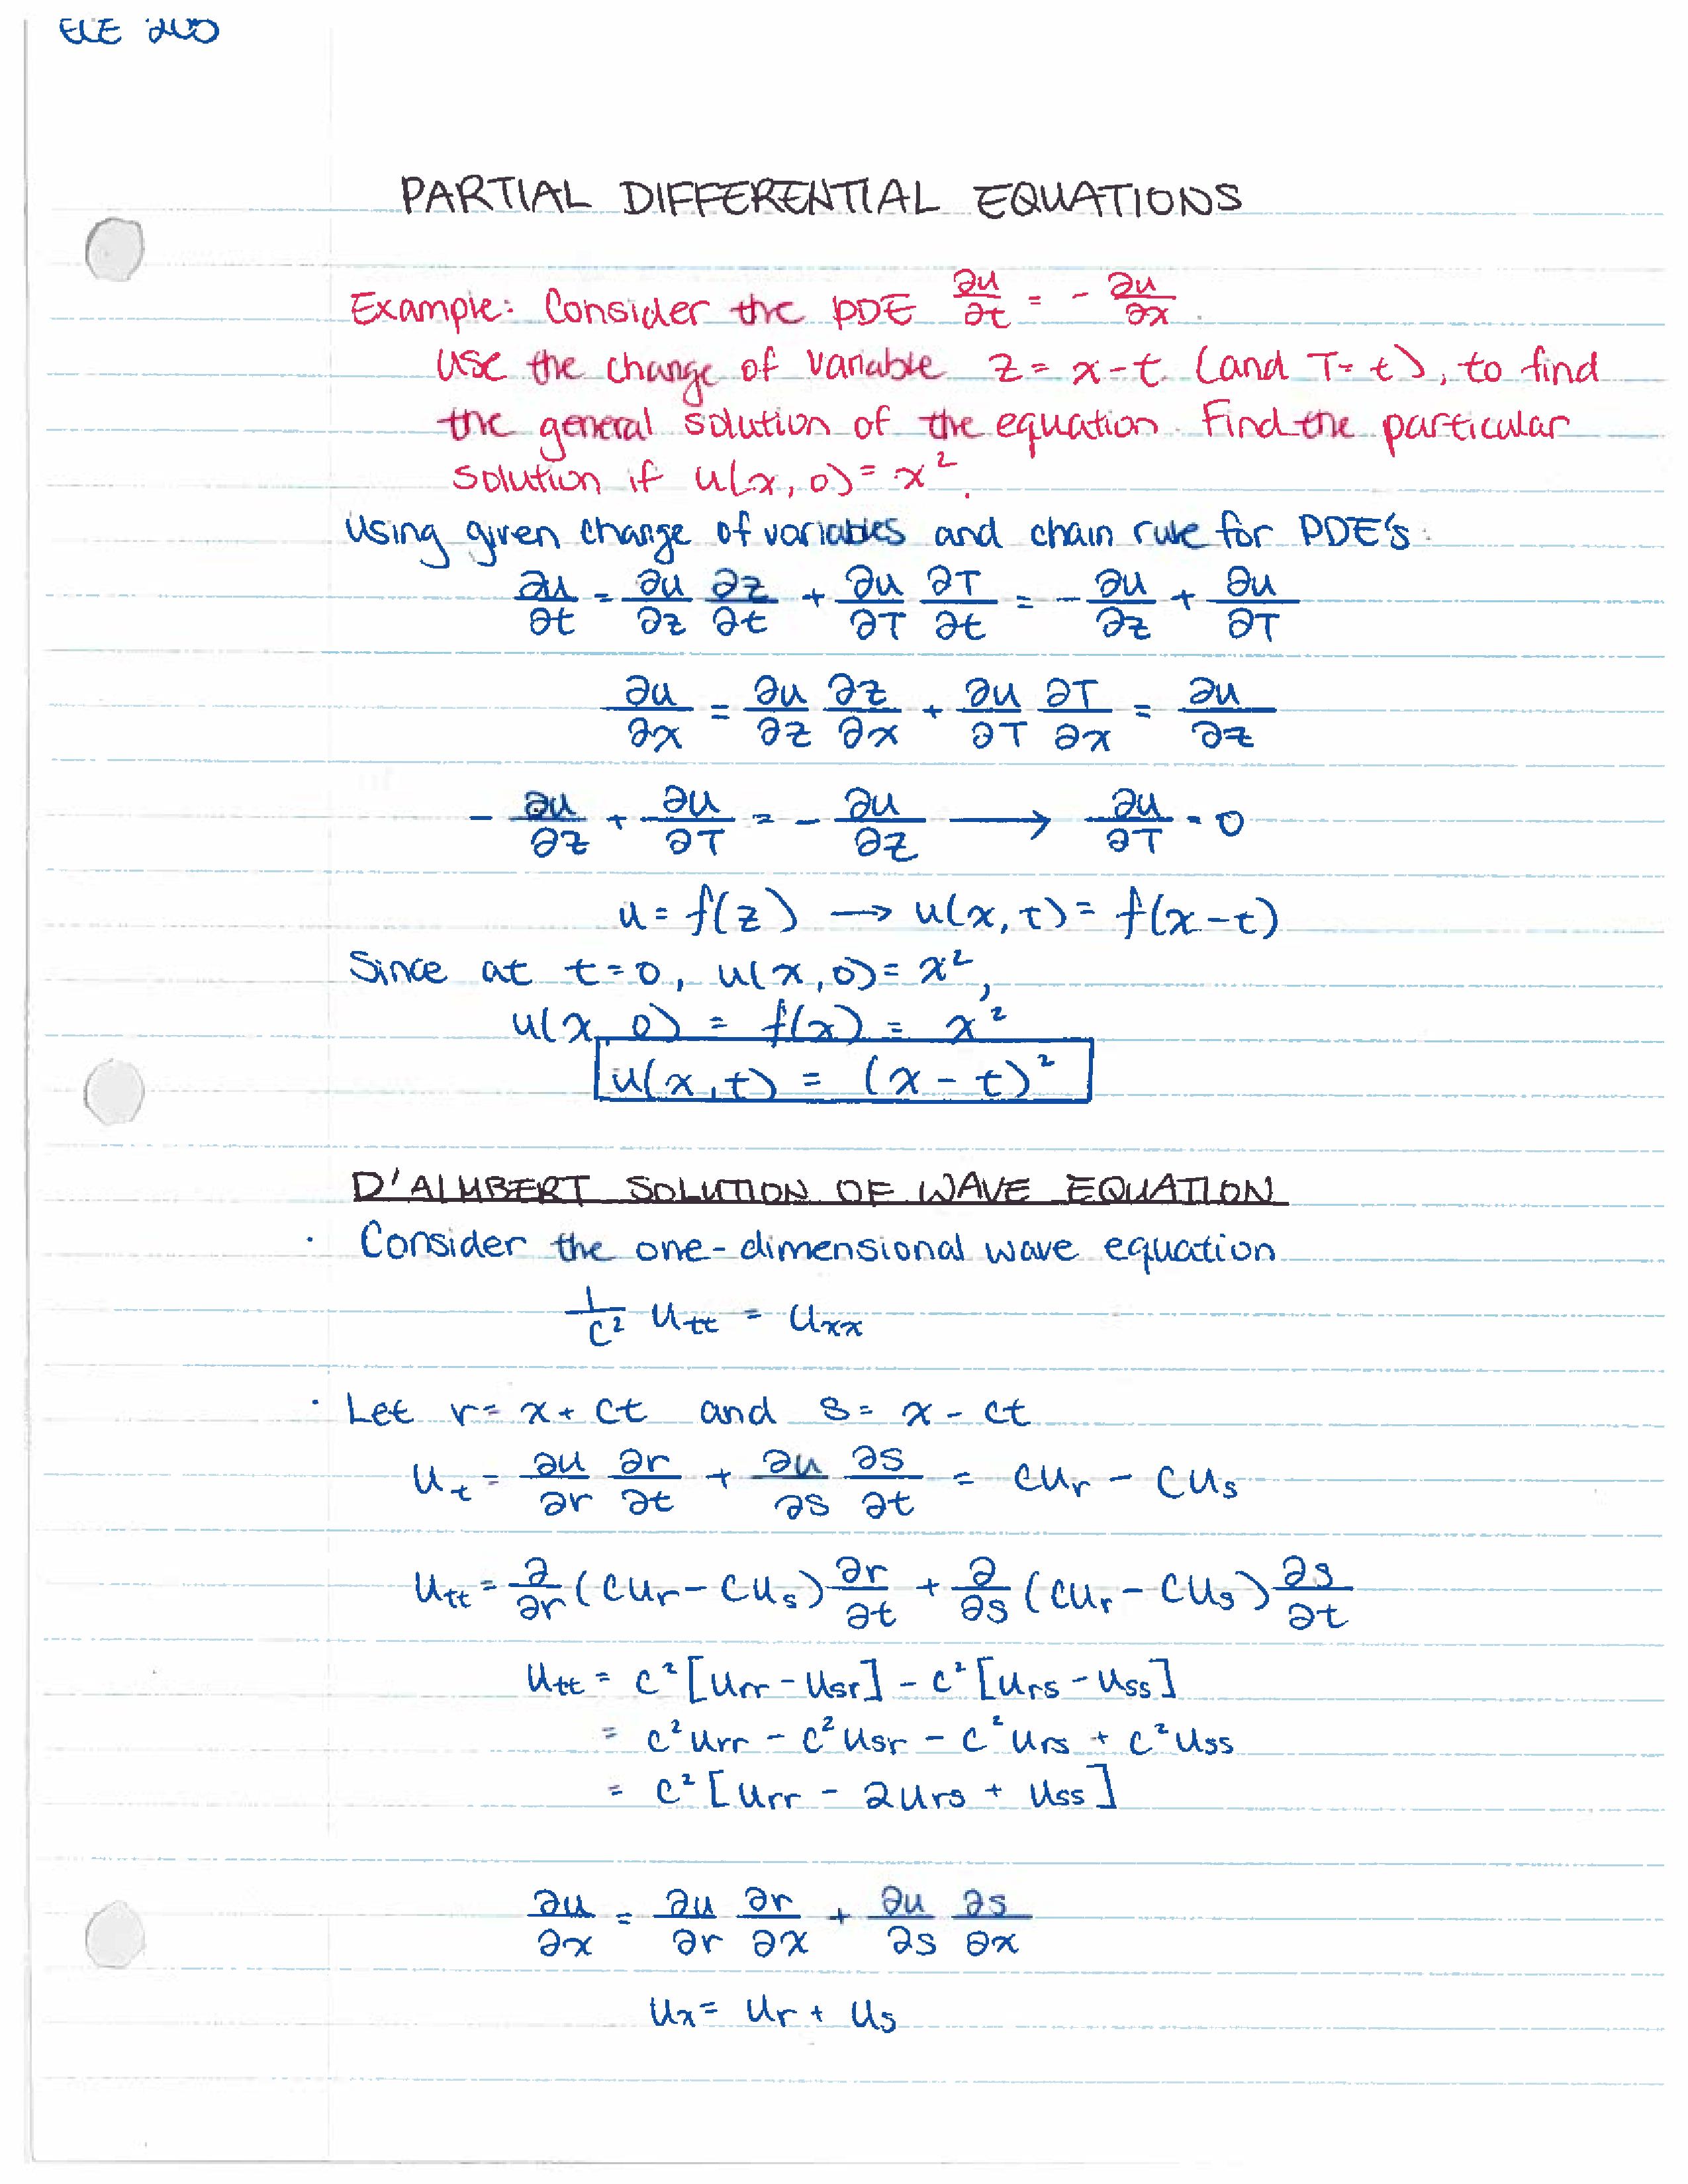 ELE 200
PARTIAL DIFFERENTIAL EQUATIONS
Example: Consider the PDE ∂u/∂t = - ∂u/∂x.
Use the change of variable z = x-t (and T=t), to find
the general solution of the equation. Find the particular
solution if u(x, 0) = x².
Using given change of variables and chain rule for PDE's:
∂u/∂t = ∂u/∂z ∂z/∂t + ∂u/∂T ∂T/∂t = - ∂u/∂z + ∂u/∂T
∂u/∂x = ∂u/∂z ∂z/∂x + ∂u/∂T ∂T/∂x = ∂u/∂z
- ∂u/∂z + ∂u/∂T = - ∂u/∂z ⟶ ∂u/∂T = 0
u = f(z) → u(x, t) = f(x-t)
Since at t=0, u(x, 0) = x²,
u(x, 0) = f(x) = x²
u(x, t) = (x - t)²
D'ALMBERT SOLUTION OF WAVE EQUATION
· Consider the one-dimensional wave equation
1/c² u_tt = u_xx
· Let r = x + ct and s = x - ct
u_t = ∂u/∂r ∂r/∂t + ∂u/∂s ∂s/∂t = cu_r - cu_s
u_tt = ∂/∂r (cu_r - cu_s) ∂r/∂t + ∂/∂s (cu_r - cu_s) ∂s/∂t
u_tt = c² [u_rr - u_sr] - c² [u_rs - u_ss]
= c² u_rr - c² u_sr - c² u_rs + c² u_ss
= c² [u_rr - 2u_rs + u_ss]
∂u/∂x = ∂u/∂r ∂r/∂x + ∂u/∂s ∂s/∂x
u_x = u_r + u_s